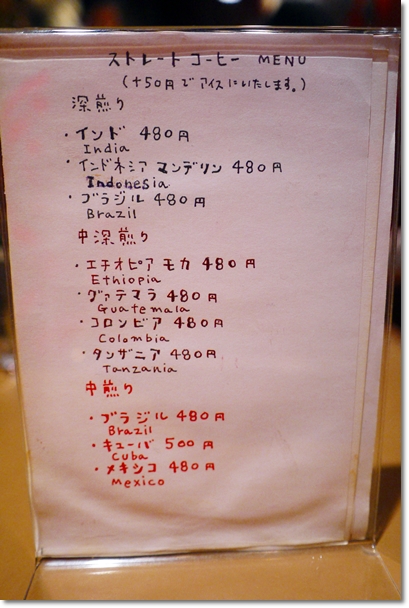 ストレートコーヒー MENU
(+50円でアイスにいたします。)
深煎り
・インド 480円
India
・インドネシア マンデリン 480円
Indonesia
・ブラジル 480円
Brazil
中深煎り
・エチオピア モカ 480円
Ethiopia
・グァテマラ 480円
Guatemala
・コロンビア 480円
Colombia
・タンザニア 480円
Tanzania
中煎り
・ブラジル 480円
Brazil
・キューバ 500円
Cuba
・メキシコ 480円
Mexico